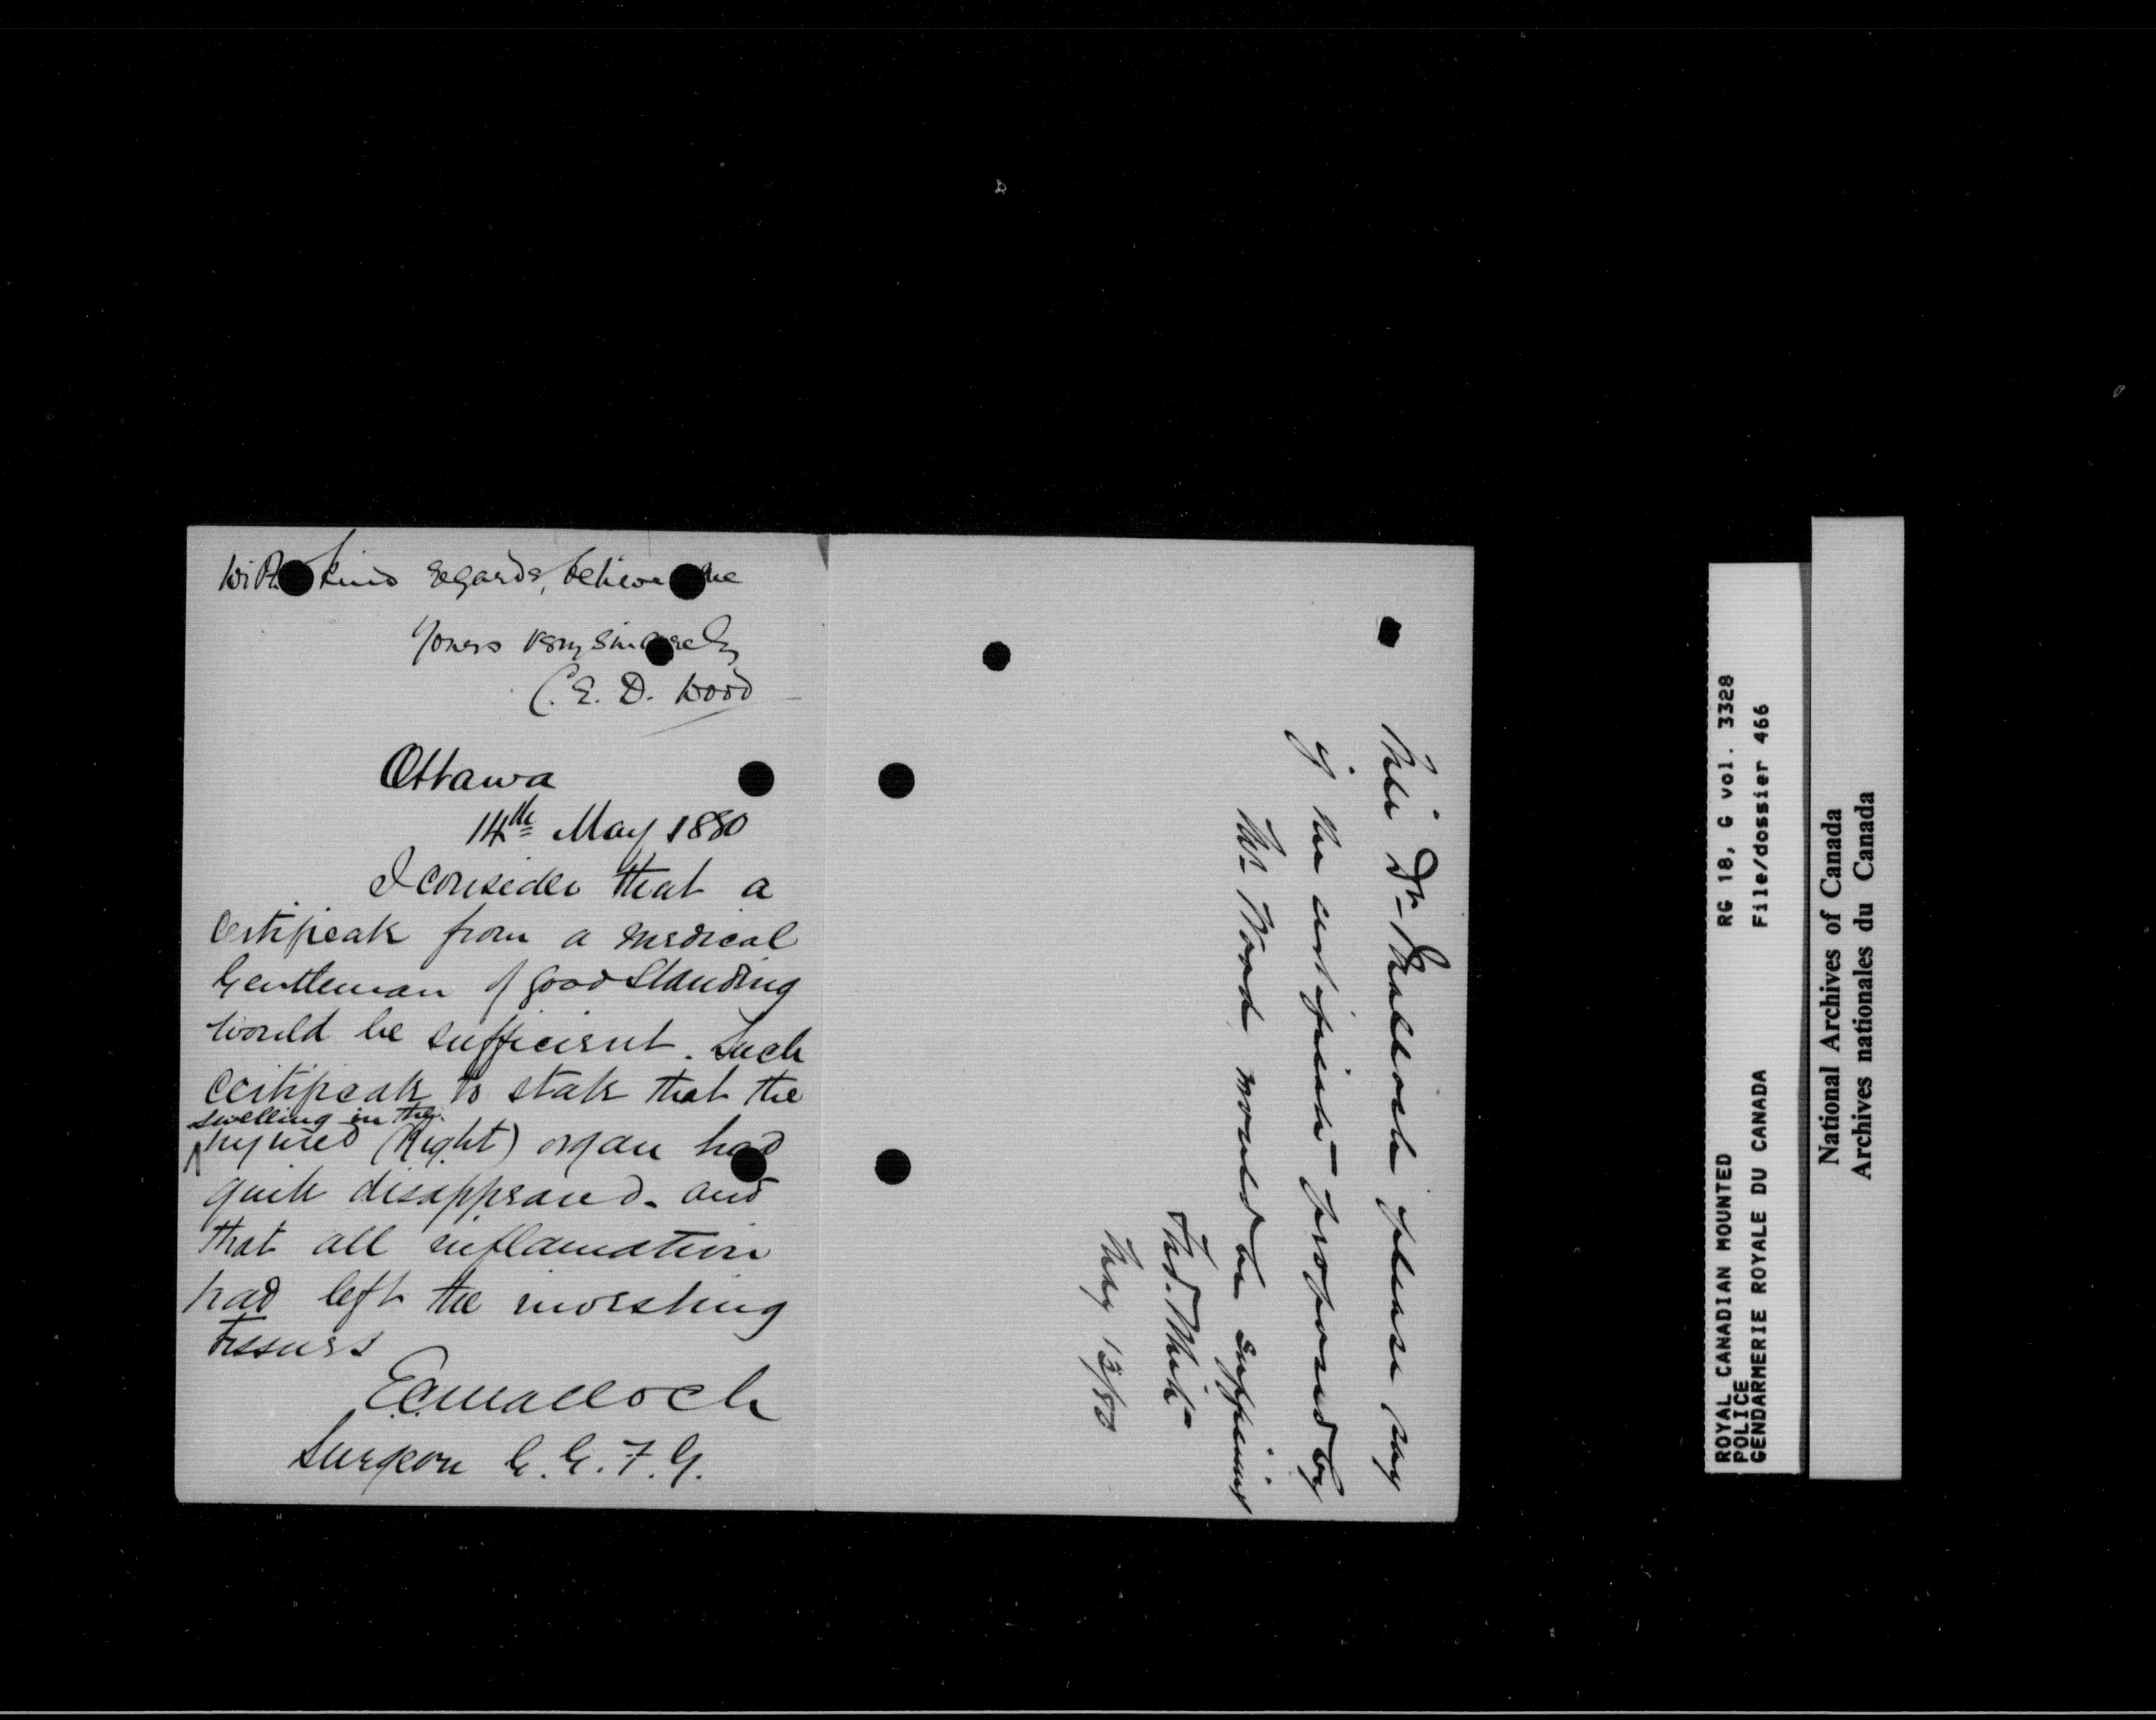 With kind regards, believe me
Yours very sincerely
C. E. D. Wood
Ottawa
14th May 1880
I consider that a
Certificate from a medical
Gentleman of good standing
would be sufficient. Such
Certificate to state that the
swelling in the
injured (Right) organ had
quite disappeared. and
that all inflamation
had left the
tissues
E.C. Malloch
Surgeon G. G. F. G.
Will Dr Malloch please say
if the certificate proposed by
Mr Wood would be sufficient
Fred. White
May 13/80
ROYAL CANADIAN MOUNTED
POLICE
GENDARMERIE ROYALE DU CANADA
RG 18, G vol. 3328
File/dossier 466
National Archives of Canada
Archives nationales du Canada